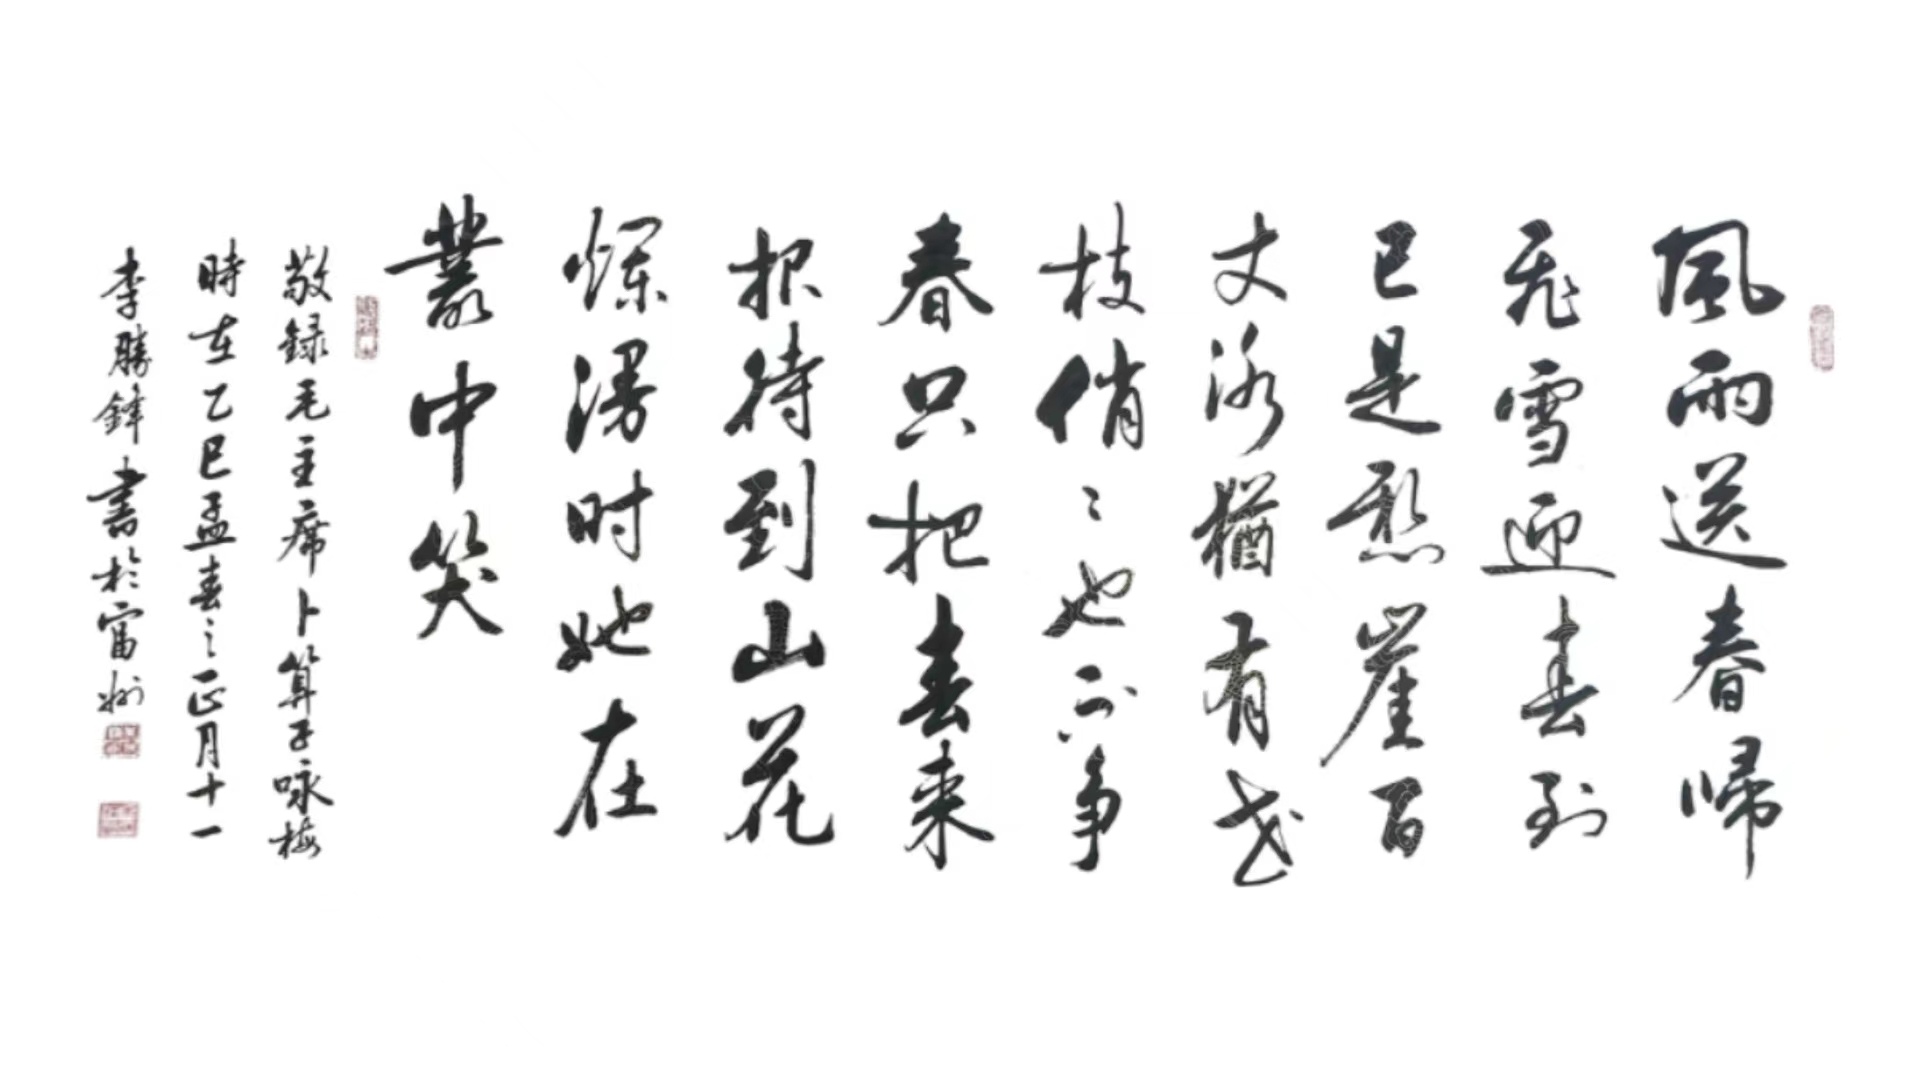 風雨送春歸
飛雪迎春到
已是懸崖百
丈冰猶有花
枝俏〻也不争
春只把春来
报待到山花
爛漫时她在
叢中笑
敬録毛主席卜算子咏梅
時在乙巳孟春之正月十一
李勝鋒書於富州